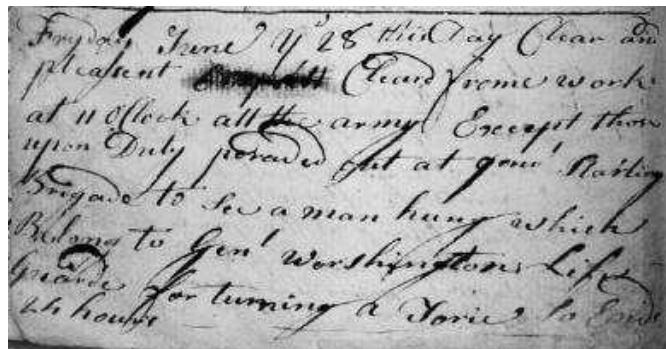 Fryday June ye 28 this Day Clear and
pleasent Cleard frome work
at 11 oClock all the army Except those
upon Duty peraded out at genl
Brigade to See a man hung which
Belong to Genl Worshington Life
Guarde for turning a Torie So Ends
24 hours